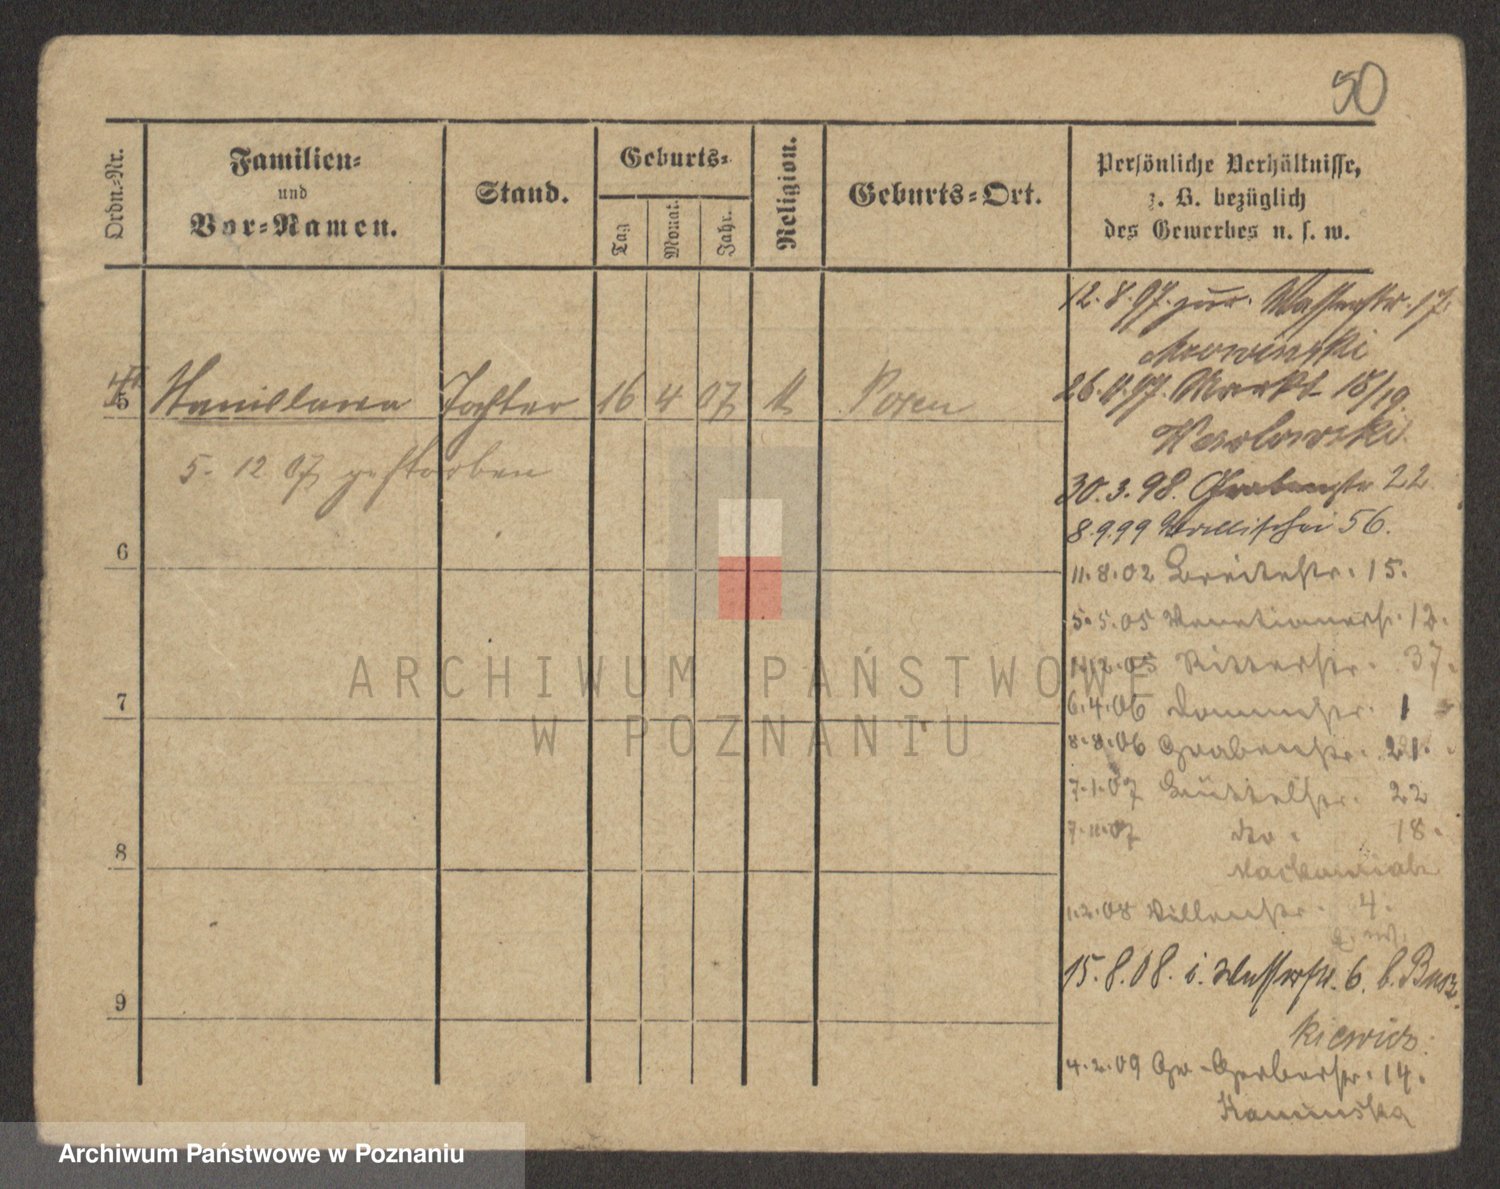 50
Ordn.-Nr.
Familien-
und
Vor-Namen.
Stand.
Geburts-
Tag
Monat.
Jahr.
Religion.
Geburts-Ort.
Persönliche Verhältnisse,
z. B. bezüglich
des Gewerbes u. s. w.
12.8.97. zur. Wasserstr. 17.
Mrowinski
5 Stanislawa Tochter 16 4 07 k Posen
5. 12 07 gestorben
26.11.97. Markt 18/19
Wesolowski
30.3.98. Grabenstr 22
8.9.99 Wallischei 56.
6
11.8.02 Breitestr. 15.
5.5.05 Venetianerstr. 12.
12.05 Ritterstr. 37.
7
6.4.06 Dominstr. 1
8.8.06 Grabenstr. 21.
7.1.07 Büttelstr. 22
7.11.07 do. 18.
8
1.2.08 4.
15.8.08. i. Wasserstr. 6. b. Busz
kiewicz.
9
4.2.09 Gr. Gerberstr. 14.
Kaminska
ARCHIWUM PAŃSTWOWE
W POZNANIU
Archiwum Państwowe w Poznaniu